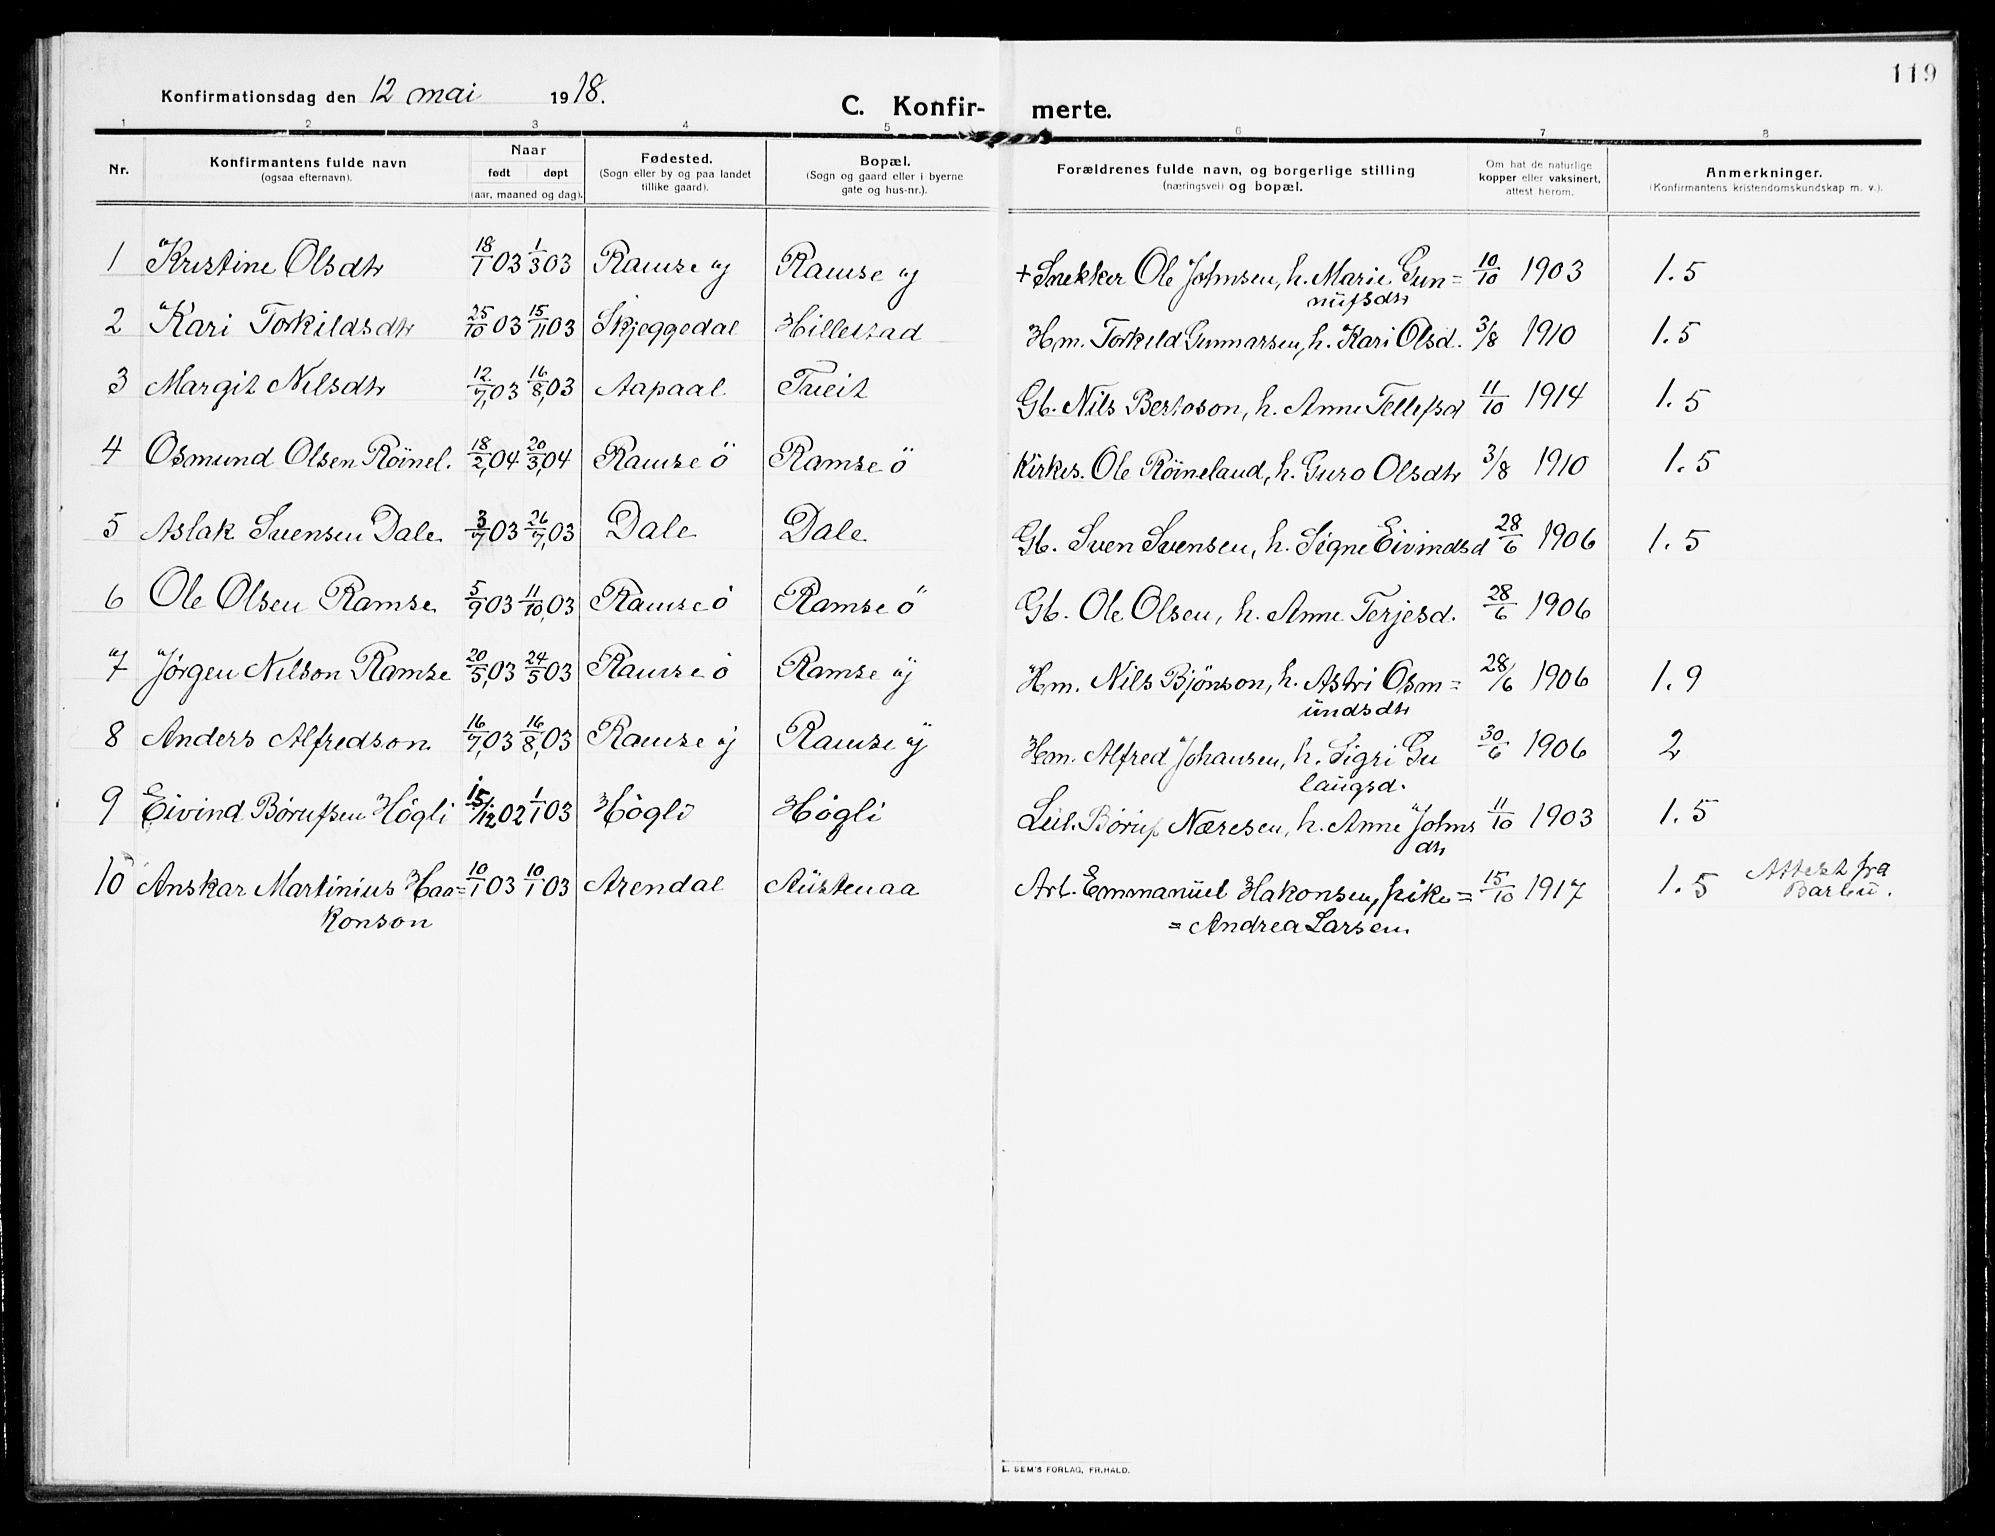 119
Konfirmationsdag den 12 mai 1918.
C. Konfir- merte.
1 2 3 4 5 6 7 8
Nr. Konfirmantens fulde navn (ogsaa efternavn). Naar født døpt (aar, maaned og dag). Fødested. (Sogn eller by og paa landet tillike gaard). Bopæl. (Sogn og gaard eller i byerne gate og hus-nr.). Forældrenes fulde navn, og borgerlige stilling (næringsvei) og bopæl. Om hat de naturlige kopper eller vaksinert, attest herom. Anmerkninger. (Konfirmantens kristendomskundskap m. v.).
1 Kristine Olsdtr 18/1 03 1/3 03 Ramse y Ramse y + Snekker Ole Johnsen, h. Marie Gun= 10/10 1903 1.5
nufsdtr
2 Kari Torkildsdtr 25/10 03 15/11 03 Skjeggedal Hillestad Hm. Torkild Gunnarsen, h. Kari Olsd. 3/8 1910 1.5
3 Margit Nilsdtr 12/7, 03 16/8, 03 Aapaal Tveit Gb. Nils Bertoson, h. Anne Tellefsd 11/10 1914 1.5
4 Osmund Olsen Röinel. 18/2, 04 20/3, 04 Ramse ö Ramse ö Kirkes. Ole Röineland, h. Guro Olsdtr 3/8 1910 1.5
5 Aslak Svensen Dale 3/7 03 26/7, 03 Dale Dale Gb. Sven Svensen, h. Signe Eivindsd 28/6 1906 1.5
6 Ole Olsen Ramse 5/9 03 11/10, 03 Ramse ö Ramse ö Gb. Ole Olsen, h. Anne Terjesd. 28/6 1906
7 Jörgen Nilson Ramse 20/5, 03 24/5 03 Ramse ö Ramse y Hm. Nils Bjönson, h. Astri Osm= 28/6 1906 1.9
undsdtr
8 Anders Alfredson 16/7, 03 16/8, 03 Ramse y Ramse y Hm. Alfred Johansen, h. Sigri Gu 30/6 1906 2
laugsd.
9 Eivind Börufsen Högli 15/12 02 1/1 03 Högli Högli Leil. Böruf Næresen, h. Anne Johns 11/10 1903 1.5
dtr
10 Anskar Martinius Haa= 10/1 03 10/1 03 Arendal Austenaa Arb. Emmanuel Hakonsen, pike= 15/10 1917 1.5 Attest fra
konson = Andrea Larsen. Barbu.
E. SEM'S FORLAG, FR.HALD.